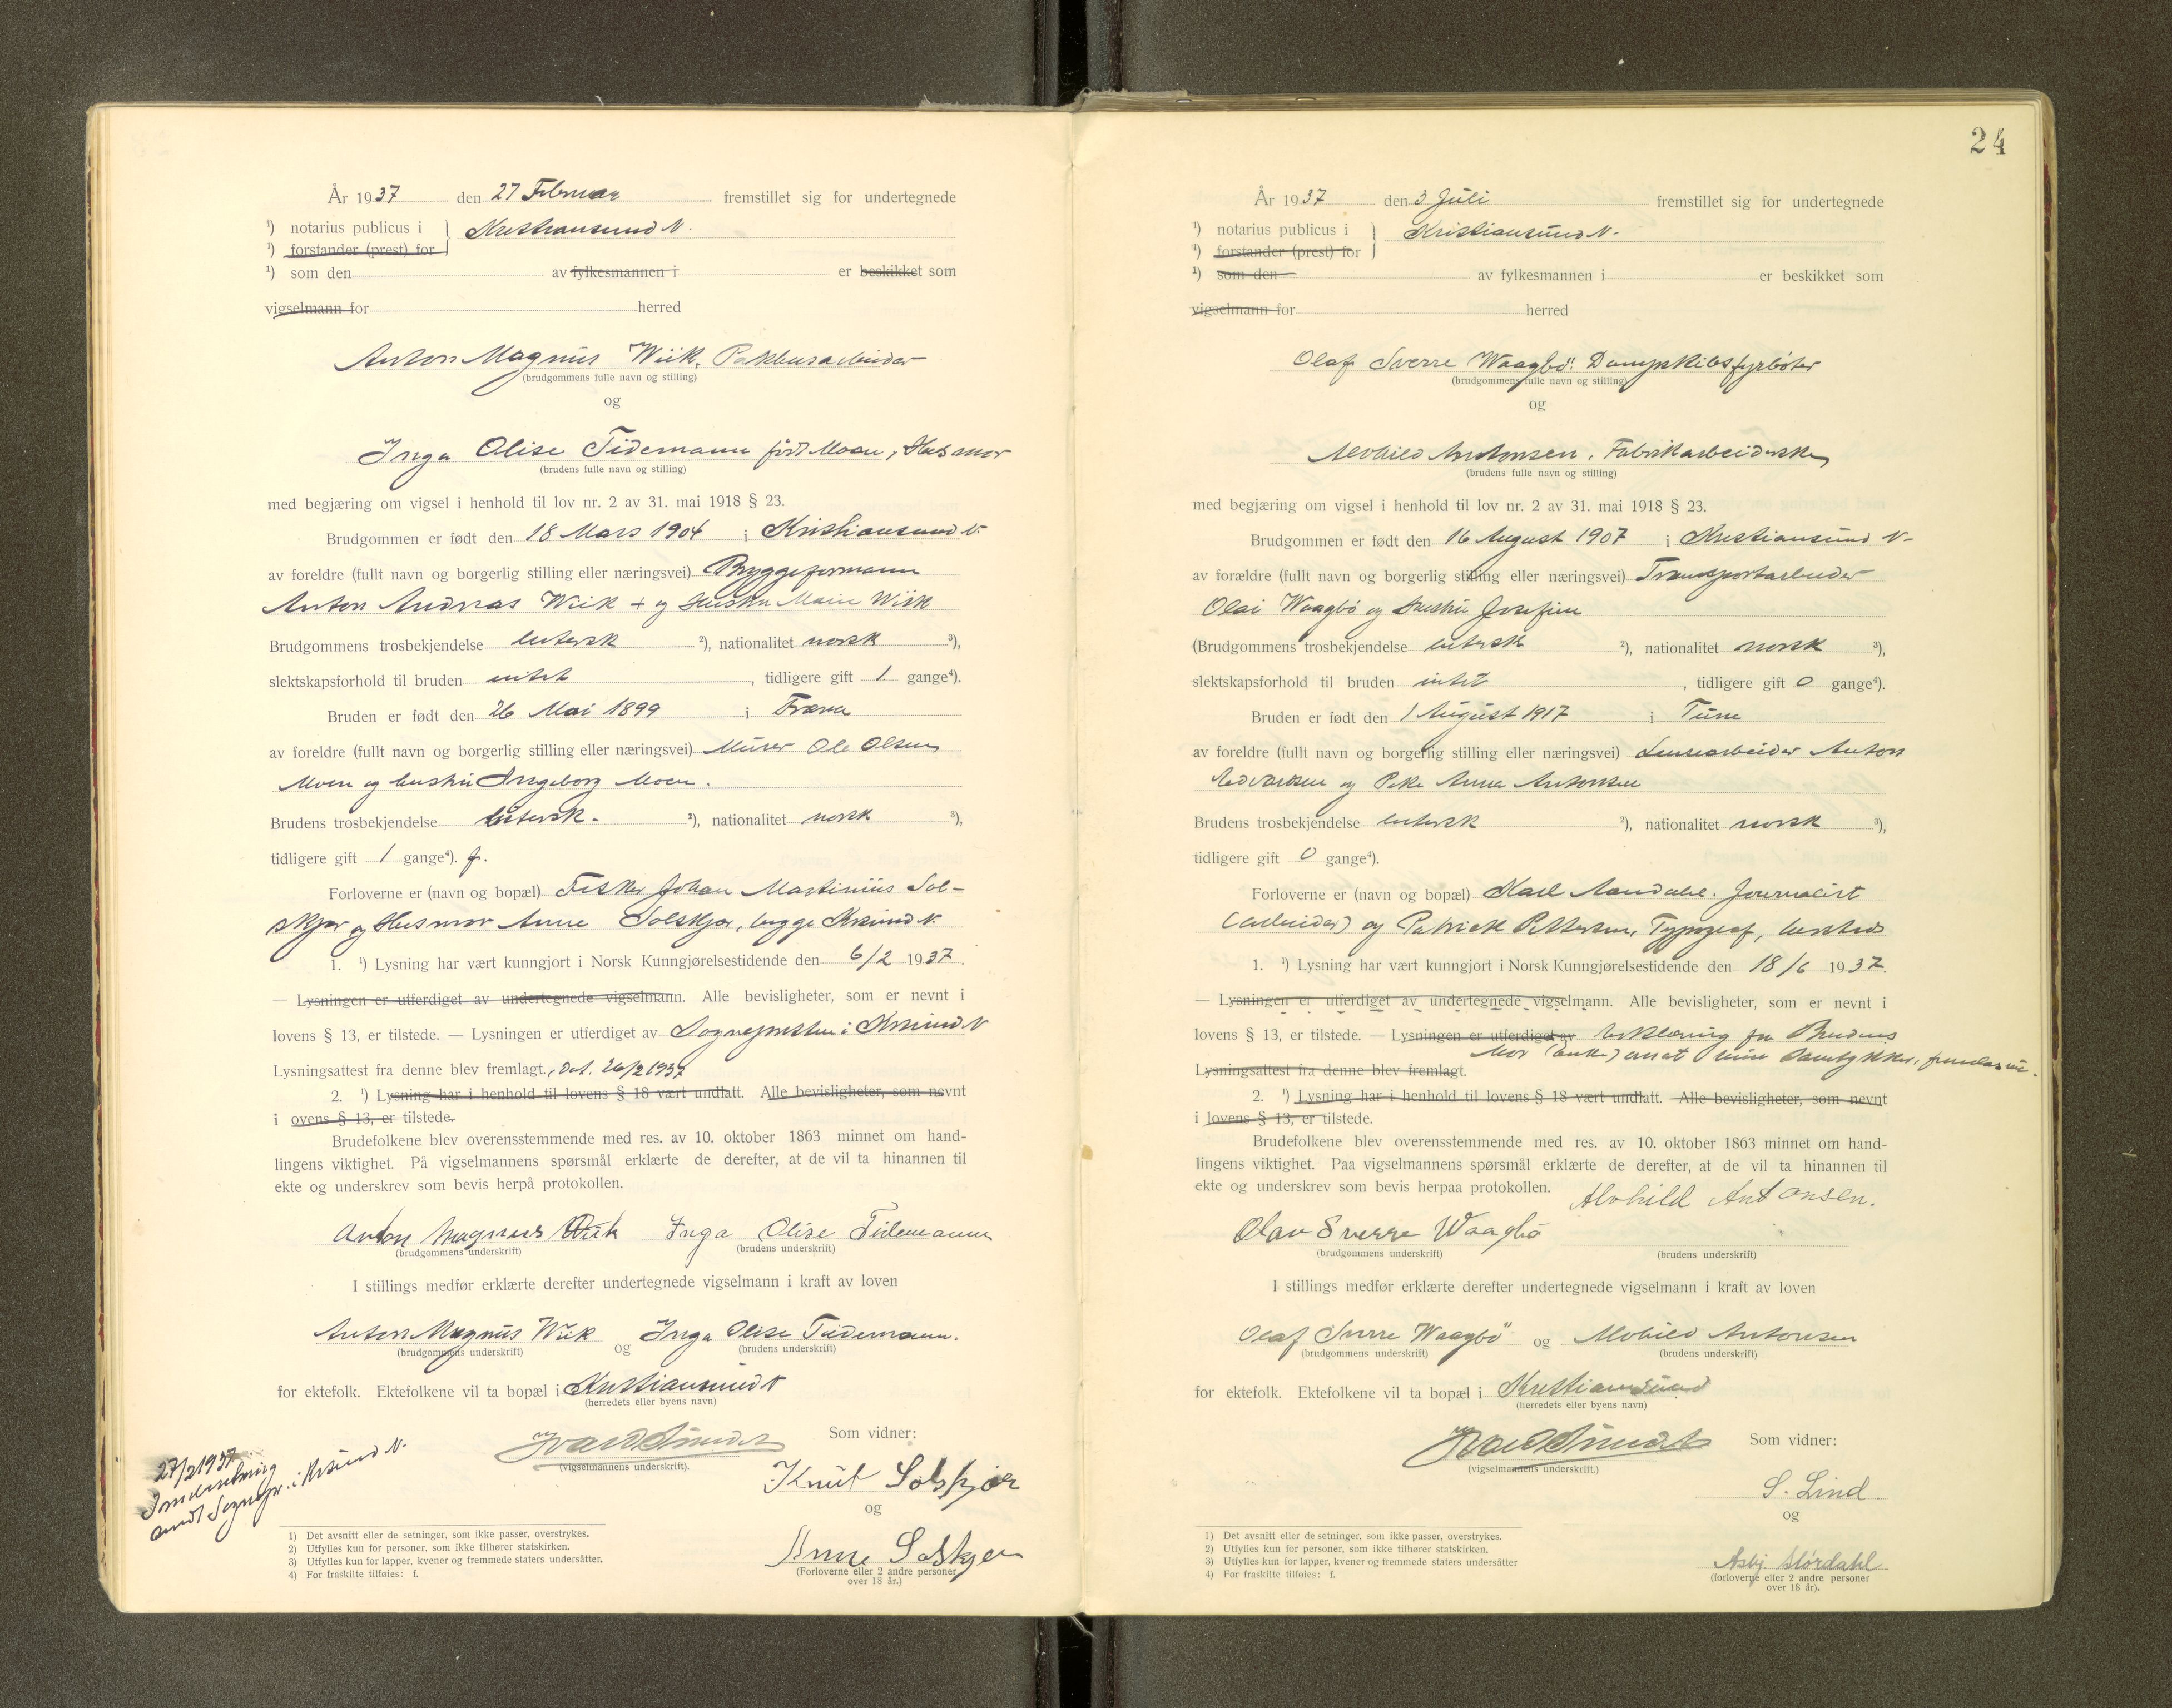 År 1937 den 27 Februar fremstillet sig for undertegnede
1) notarius publicus i Kristiansund N.
1) forstander (prest) for
1) som den av fylkesmannen i er beskikket som
vigselmann for herred
Anton Magnus Wiik, Pakhusarbeider
(brudgommens fulle navn og stilling)
og
Inga Olise Tidemann født Moen, Husmor
(brudens fulle navn og stilling)
med begjæring om vigsel i henhold til lov nr. 2 av 31. mai 1918 § 23.
Brudgommen er født den 18 Mars 1904 i Kristiansund N.
av foreldre (fullt navn og borgerlig stilling eller næringsvei) Bryggeformann
Anton Andreas Wiik + og Hustru Marie Wiik
Brudgommens trosbekjendelse lutersk 2), nationalitet norsk 3),
slektskapsforhold til bruden intet, tidligere gift 1 gange4).
Bruden er født den 26 Mai 1899 i Fræna
av foreldre (fullt navn og borgerlig stilling eller næringsvei) Murer Ole Olsen
Moen og hustru Ingeborg Moen.
Brudens trosbekjendelse lutersk. 2), nationalitet norsk 3),
tidligere gift 1 gange4). f.
Forloverne er (navn og bopæl) Fisker Johan Martinius Sol-
skjær og Husmor Anne Solskjær, begge Krsund N.
1. 1) Lysning har vært kunngjort i Norsk Kunngjørelsestidende den 6/2 1937.
— Lysningen er utferdiget av undertegnede vigselmann. Alle bevisligheter, som er nevnt i
lovens § 13, er tilstede. — Lysningen er utferdiget av Sognepresten i Krsund N
Lysningsattest fra denne blev fremlagt., dat. 26/2 1937
2. 1) Lysning har i henhold til lovens § 18 vært undlatt. Alle bevisligheter, som nevnt
i ovens § 13, er tilstede.
Brudefolkene blev overensstemmende med res. av 10. oktober 1863 minnet om hand-
lingens viktighet. På vigselmannens spørsmål erklærte de derefter, at de vil ta hinannen til
ekte og underskrev som bevis herpå protokollen.
Anton Magnus Wiik Inga Olise Tidemann
(brudgommens underskrift) (brudens underskrift)
I stillings medfør erklærte derefter undertegnede vigselmann i kraft av loven
Anton Magnus Wiik og Inga Olise Tidemann.
(brudgommens underskrift) (brudens underskrift)
for ektefolk. Ektefolkene vil ta bopæl i Kristiansund N
(herredets eller byens navn)
Som vidner:
(vigselmannens underskrift).
Knut Solskjær
og
Anne Solskjær
(Forloverne eller 2 andre personer
over 18 år.)
27/2 1937
Innberetning
sendt Sognepr. i Krsund N.
1) Det avsnitt eller de setninger, som ikke passer, overstrykes.
2) Utfylles kun for personer, som ikke tilhører statskirken.
3) Utfylles kun for lapper, kvener og fremmede staters undersåtter.
4) For fraskilte tilføies: f.
24
År 1937 den 3 Juli fremstillet sig for undertegnede
1) notarius publicus i Kristiansund N.
1) forstander (prest) for
1) som den av fylkesmannen i er beskikket som
vigselmann for herred
Olaf Sverre Waagbö. Dampskibsfyrbøter
(brudgommens fulle navn og stilling)
og
Alvhild Antonsen, Fabrikarbeiderske
(brudens fulle navn og stilling)
med begjæring om vigsel i henhold til lov nr. 2 av 31. mai 1918 § 23.
Brudgommen er født den 16 August 1907 i Kristiansund N-
av forældre (fullt navn og borgerlig stilling eller næringsvei) Transportarbeider
Olai Waagbö og Hustru Josefine
(Brudgommens trosbekjendelse lutersk 2), nationalitet norsk 3),
slektskapsforhold til bruden intet, tidligere gift 0 gange4).
Bruden er født den 1 August 1917 i Tune
av foreldre (fullt navn og borgerlig stilling eller næringsvei) Lensearbeider Anton
Edvardsen og Pike Anna Antonsen
Brudens trosbekjendelse lutersk 2), nationalitet norsk 3),
tidligere gift 0 gange4).
Forloverne er (navn og bopæl) Karl Aandahl. Journalist
(Arbeider) og Patrick Pettersen, Typograf, hersteds
1. 1) Lysning har vært kunngjort i Norsk Kunngjørelsestidende den 18/6 1937.
— Lysningen er utferdiget av undertegnede vigselmann. Alle bevisligheter, som er nevnt i
lovens § 13, er tilstede. — Lysningen er utferdiget av Erklæring fra Brudens
Mor (Enke) om at hun samtykker, fremlagt.
Lysningsattest fra denne blev fremlagt.
2. 1) Lysning har i henhold til lovens § 18 vært undlatt. Alle bevisligheter, som nevnt
i lovens § 13, er tilstede.
Brudefolkene blev overensstemmende med res. av 10. oktober 1863 minnet om hand-
lingens viktighet. Paa vigselmannens spørsmål erklærte de derefter, at de vil ta hinannen til
ekte og underskrev som bevis herpaa protokollen.
Alvhild Antonsen.
Olav Sverre Waagbø
(brudgommens underskrift) (brudens underskrift)
I stillings medfør erklærte derefter undertegnede vigselmann i kraft av loven
Olaf Sverre Waagbö og Alvhild Antonsen
(brudgommens underskrift) (brudens underskrift)
for ektefolk. Ektefolkene vil ta bopæl i Kristiansund
(herredets eller byens navn)
Som vidner:
(vigselmannens underskrift.)
S. Lind
og
Asbj. Størdahl
(forloverne eller 2 andre personer
over 18 år).
1) Det avsnitt eller de setninger, som ikke passer, overstrykes.
2) Utfylles kun for personer, som ikke tilhører statskirken.
3) Utfylles kun for lapper, kvener og fremmede staters undersåtter
4) For fraskilte tilføies: f.